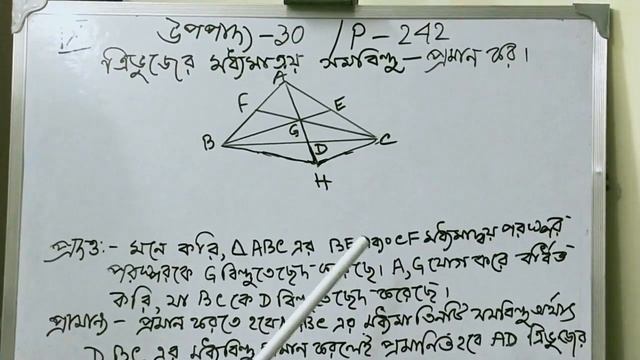 উপপাদ্য-30 / P-242
ত্রিভুজের মধ্যমাত্রয় সমবিন্দু – প্রমান কর।
A
F
E
G
B
D
C
H
প্রদত্ত:- মনে করি, △ABC এর BE এবং CF মধ্যমাদ্বয় পরস্পর
পরস্পরকে G বিন্দুতে ছেদ করেছে। A, G যোগ করে বর্ধিত
করি, যা BC কে D ছেদ করেছে।
প্রামান্য:- প্রমান করতে হবে ABC এর মধ্যমা তিনটি সমবিন্দু অর্থাৎ
D BC এর মধ্যবিন্দু প্রমান করলেই প্রমানিত হবে AD ত্রিভুজের